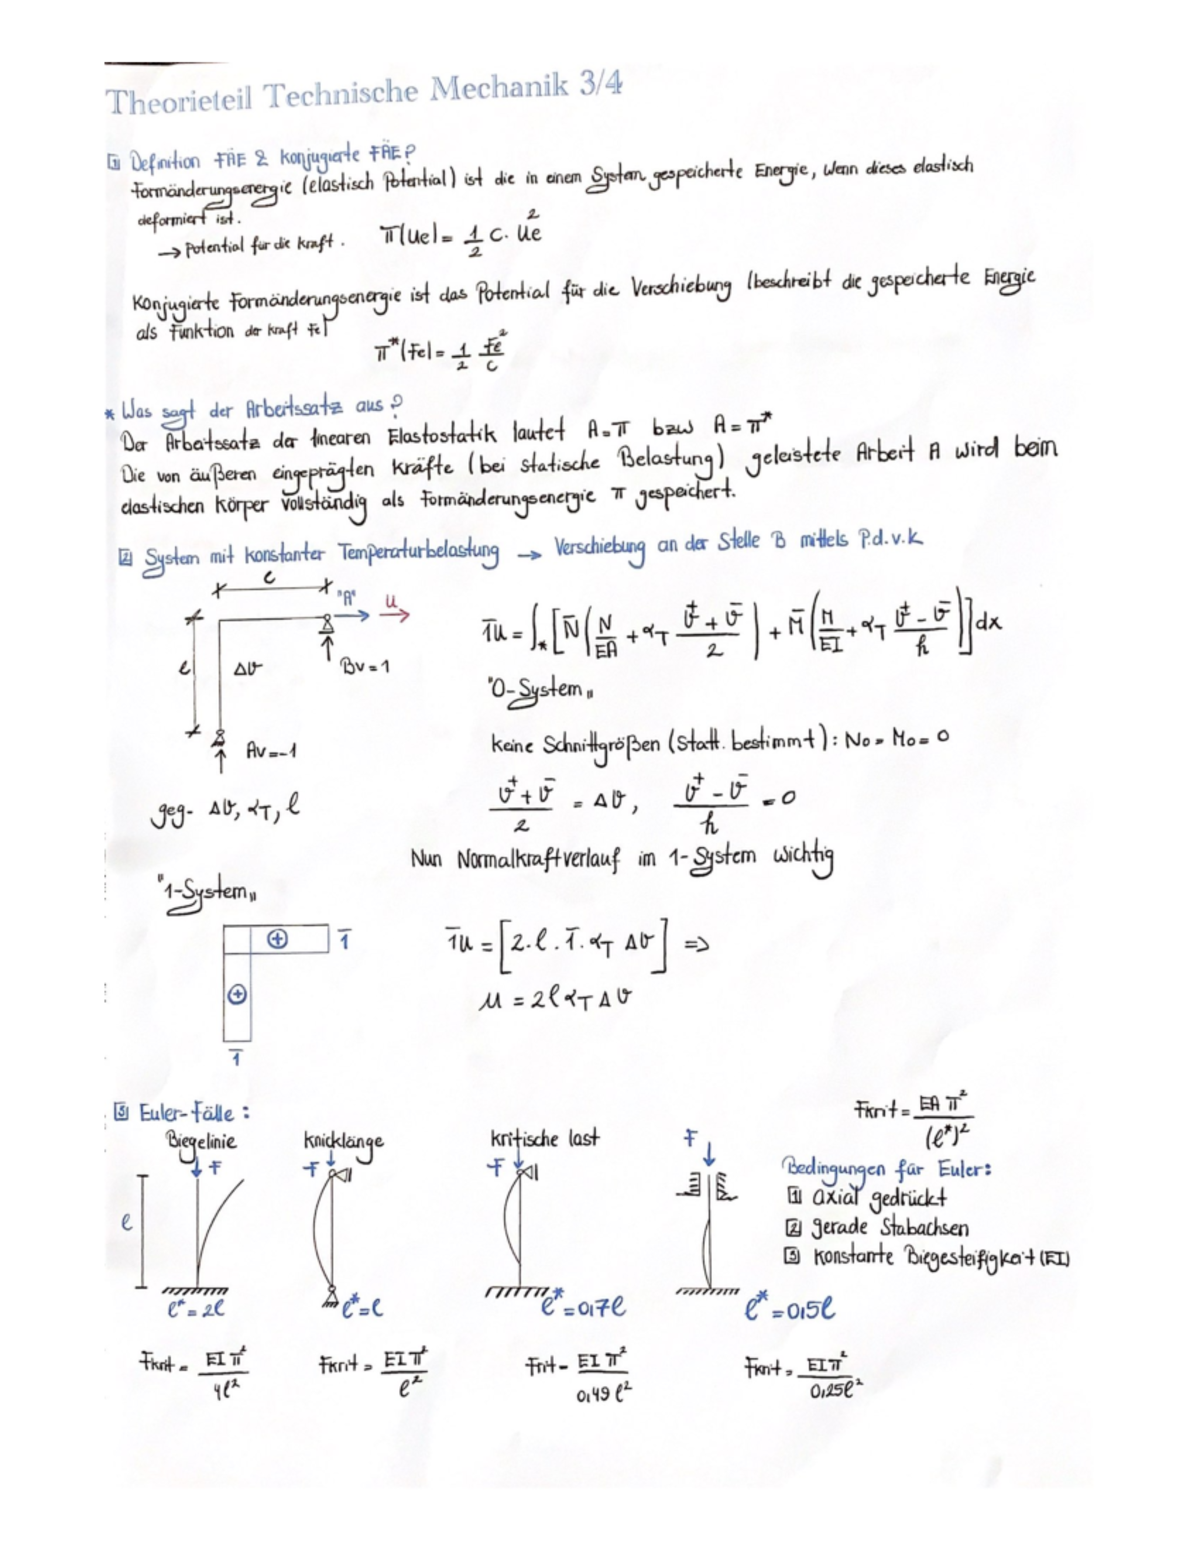 Theorieteil Technische Mechanik 3/4
1 Definition FÄE & konjugierte FÄE?
Formänderungsenergie (elastisch Potential) ist die in einem System gespeicherte Energie, wenn dieses elastisch
deformiert ist.
→ Potential für die Kraft. π(ue) = 1/2 c · ue²
Konjugierte Formänderungsenergie ist das Potential für die Verschiebung (beschreibt die gespeicherte Energie
als Funktion der Kraft Fe)
π*(Fe) = 1/2 Fe²/c
* Was sagt der Arbeitssatz aus?
Der Arbeitssatz der linearen Elastostatik lautet A=π bzw A=π*
Die von äußeren eingeprägten Kräfte (bei statische Belastung) geleistete Arbeit A wird beim
elastischen Körper vollständig als Formänderungsenergie π gespeichert.
2 System mit konstanter Temperaturbelastung → Verschiebung an der Stelle B mittels P.d.v.k
l
"A" u
l Δϑ Bv=1
Av=-1
geg- Δϑ, αT, l
1̄u = ∫ₓ [N̄(N/EA + αT (ϑ⁺+ϑ⁻)/2) + M̄(M/EI + αT (ϑ⁺-ϑ⁻)/h)] dx
"0-System"
keine Schnittgrößen (Statt. bestimmt): No = Mo = 0
(ϑ⁺+ϑ⁻)/2 = Δϑ, (ϑ⁺-ϑ⁻)/h = 0
Nun Normalkraftverlauf im 1-System wichtig
"1-System"
⊕ 1̄
⊕
1̄
1̄u = [2·l·1̄·αT Δϑ] ⇒
u = 2l αT Δϑ
3 Euler-Fälle:
Fkrit = EA π²/(l*)²
Biegelinie Knicklänge kritische last
F F F F
l
Bedingungen für Euler:
1 axial gedrückt
2 gerade Stabachsen
3 konstante Biegesteifigkeit (EI)
l* = 2l l* = l l* = 0,7l l* = 0,5l
Fkrit = EI π²/4l² Fkrit = EI π²/l² Frit = EI π²/0,49 l² Fkrit = EI π²/0,25l²